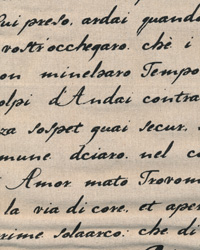 ui preso, ardai quando
rosti occhegaro. chè i
on minelbaro Tempo
olpi d'Andai contra
za sospet quai secur.
mune dciaro. nel co
Amor mato Trovom
la via di core, et aper
rime solaarco: che di